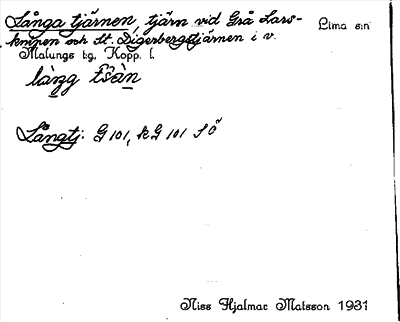 Långa tjärnen, tjärn vid Grå Lars- Lima sn
knipen och St. Digerbergstjärnen i v.
Malungs tg, Kopp. l.
làŋg
Långtj: G 101, kG 101 SÖ
Niss Hjalmar Matsson 1931